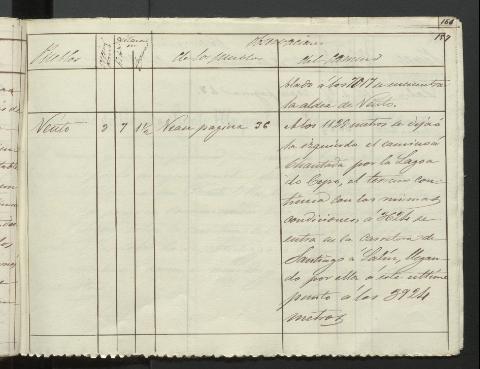 166
187
Pueblos
Descripcion
de los pueblos
del camino
blado á los 7617 se encuentra
la aldea de Vento.
Vento 2 7 1 1/2 Vean pagina 36
A los 1120 metros se deja á
la izquierda el camino á
Chantada por la Lagoa
do Cepo, el terreno con-
tinua con las mismas
condiciones, á 3624 se
entra en la carretera de
Santiago á Lalin, llegan-
do por ella á este ultimo
punto á los 5924
metros